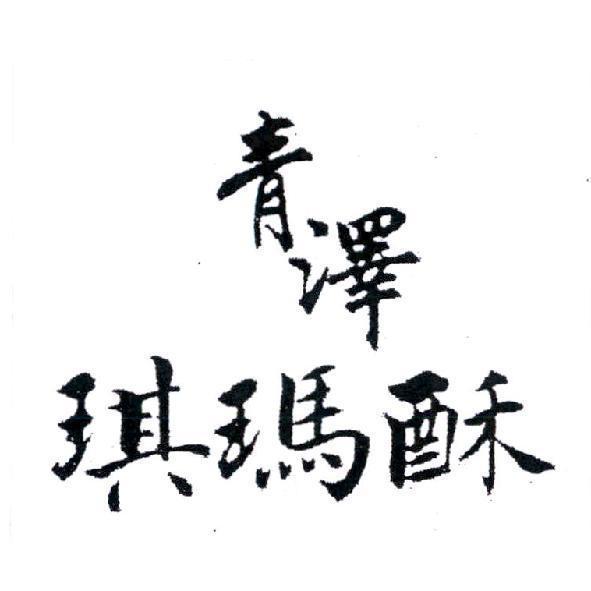 青澤
琪瑪酥